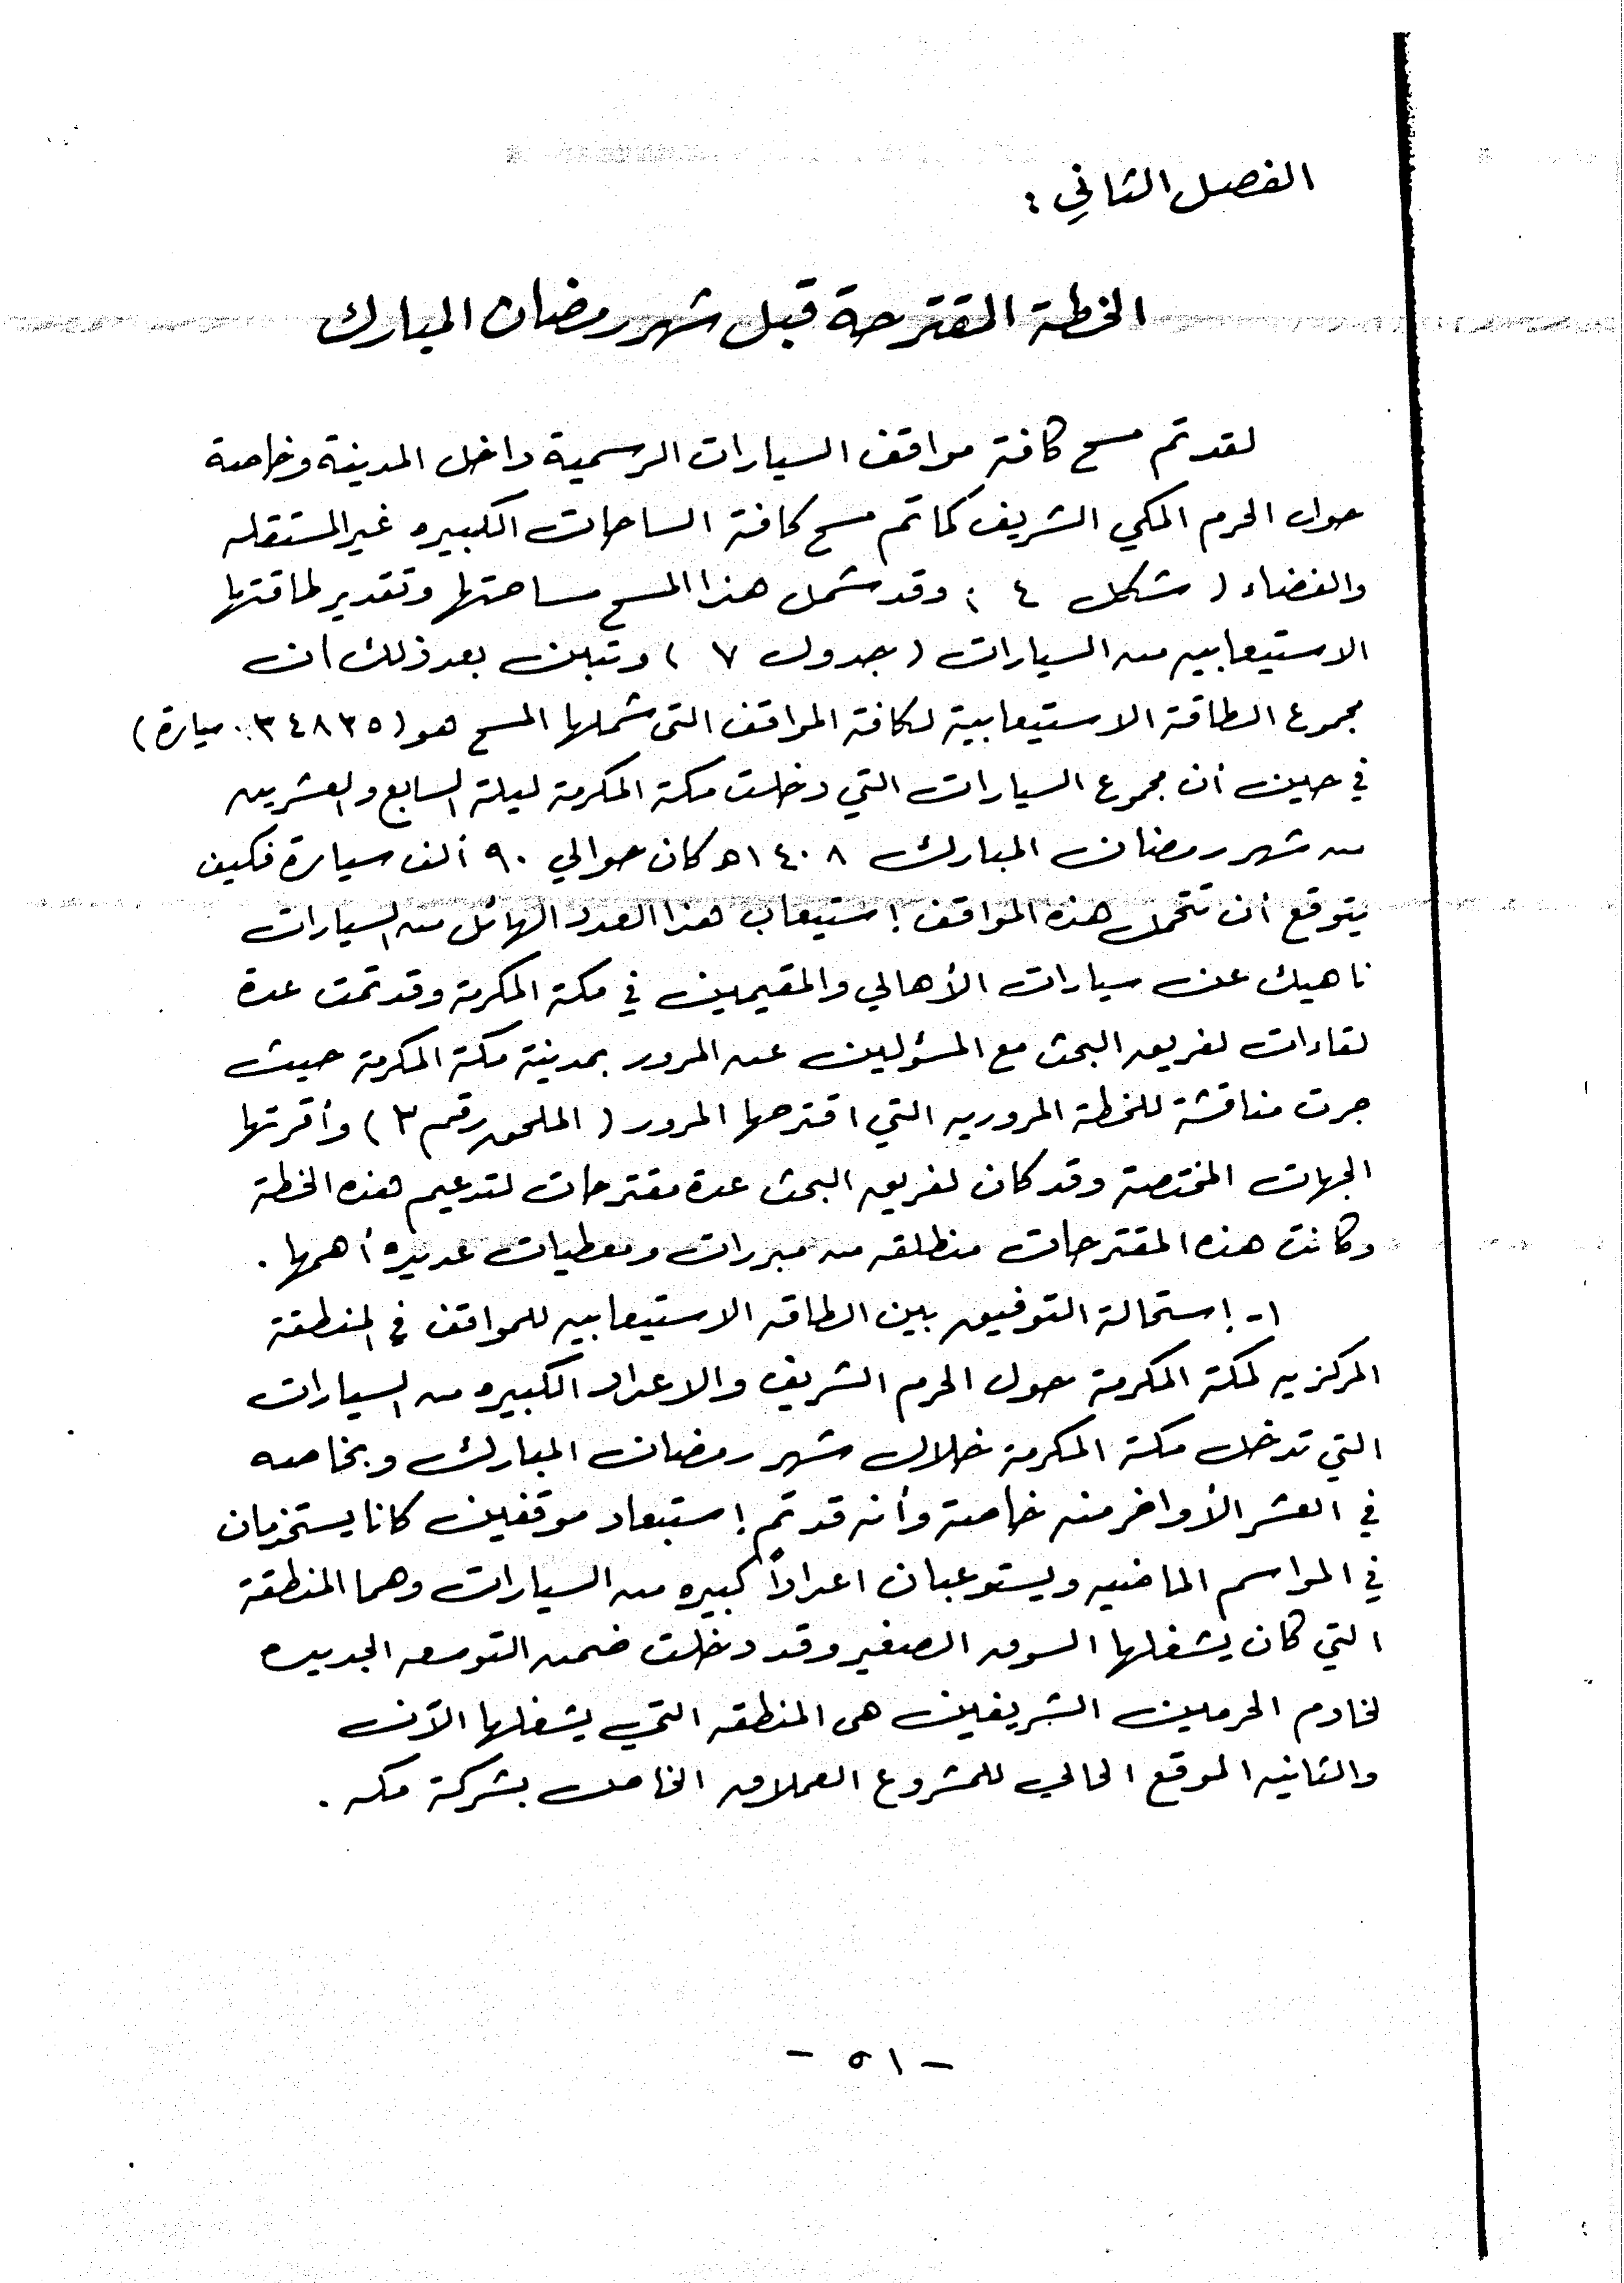 الفصل الثاني :
الخطة المقترحة قبل شهر رمضان المبارك
لقد تم مسح كافة مواقف السيارات الرسمية داخل المدينة وخاصة
حول الحرم المكي الشريف كما تم مسح كافة الساحات الكبيره غير المستغله
والفضاء ( شكل ٤ ) وقد شمل هذا المسح مساحتها وتقدير طاقتها
الاستيعابيه من السيارات ( جدول ٧ ) وتبين بعد ذلك ان
مجموع الطاقة الاستيعابية لكافة المواقف التى شملها المسح هو ( ٣٤٨٣٥ سيارة )
في حين أن مجموع السيارات التي دخلت مكة المكرمة ليلة السابع والعشرين
من شهر رمضان المبارك ١٤٠٨ه كان حوالي ٩٠ ألف سيارة فكيف
يتوقع أن تتحمل هذه المواقف إستيعاب هذا العدد الهائل من السيارات
ناهيك عن سيارات الأهالي والمقيمين في مكة المكرمة وقد تمت عدة
لقاءات لفريق البحث مع المسئولين عن المرور بمدينة مكة المكرمة حيث
جرت مناقشة للخطة المروريه التي اقترحها المرور ( الملحق رقم ٣ ) وأقرتها
الجهات المختصة وقد كان لفريق البحث عدة مقترحات لتدعيم هذه الخطة
وكانت هذه المقترحات منطلقه من مبررات ومعطيات عديده أهمها .
١- إستحالة التوفيق بين الطاقه الاستيعابيه للمواقف في المنطقة
المركزيه لمكة المكرمة حول الحرم الشريف والاعداد الكبيره من السيارات
التي تدخل مكة المكرمة خلال شهر رمضان المبارك وبخاصه
في العشر الأواخر منه خاصة وأنه قد تم إستبعاد موقفين كانا يستخدمان
في المواسم الماضيه ويستوعبان اعداداً كبيره من السيارات وهما المنطقة
التي كان يشغلها السوق الصغير وقد دخلت ضمن التوسعه الجديده
لخادم الحرمين الشريفين هى المنطقه التي يشغلها الآن
والثانيه الموقع الحالي للمشروع العملاق الخاص بشركة مكه .
- ٥١ -